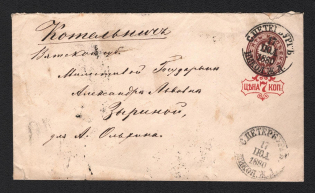 Котельничъ
Вятской губ
Милостивой Государынѣ
Александрѣ Львовнѣ
Зыриной
для А. Ольхина.
С.ПЕТЕРБУРГЪ
ЦѢНА 7 КОП.
С.ПЕТЕРБУРГЪ
17
ІЮЛ
1880